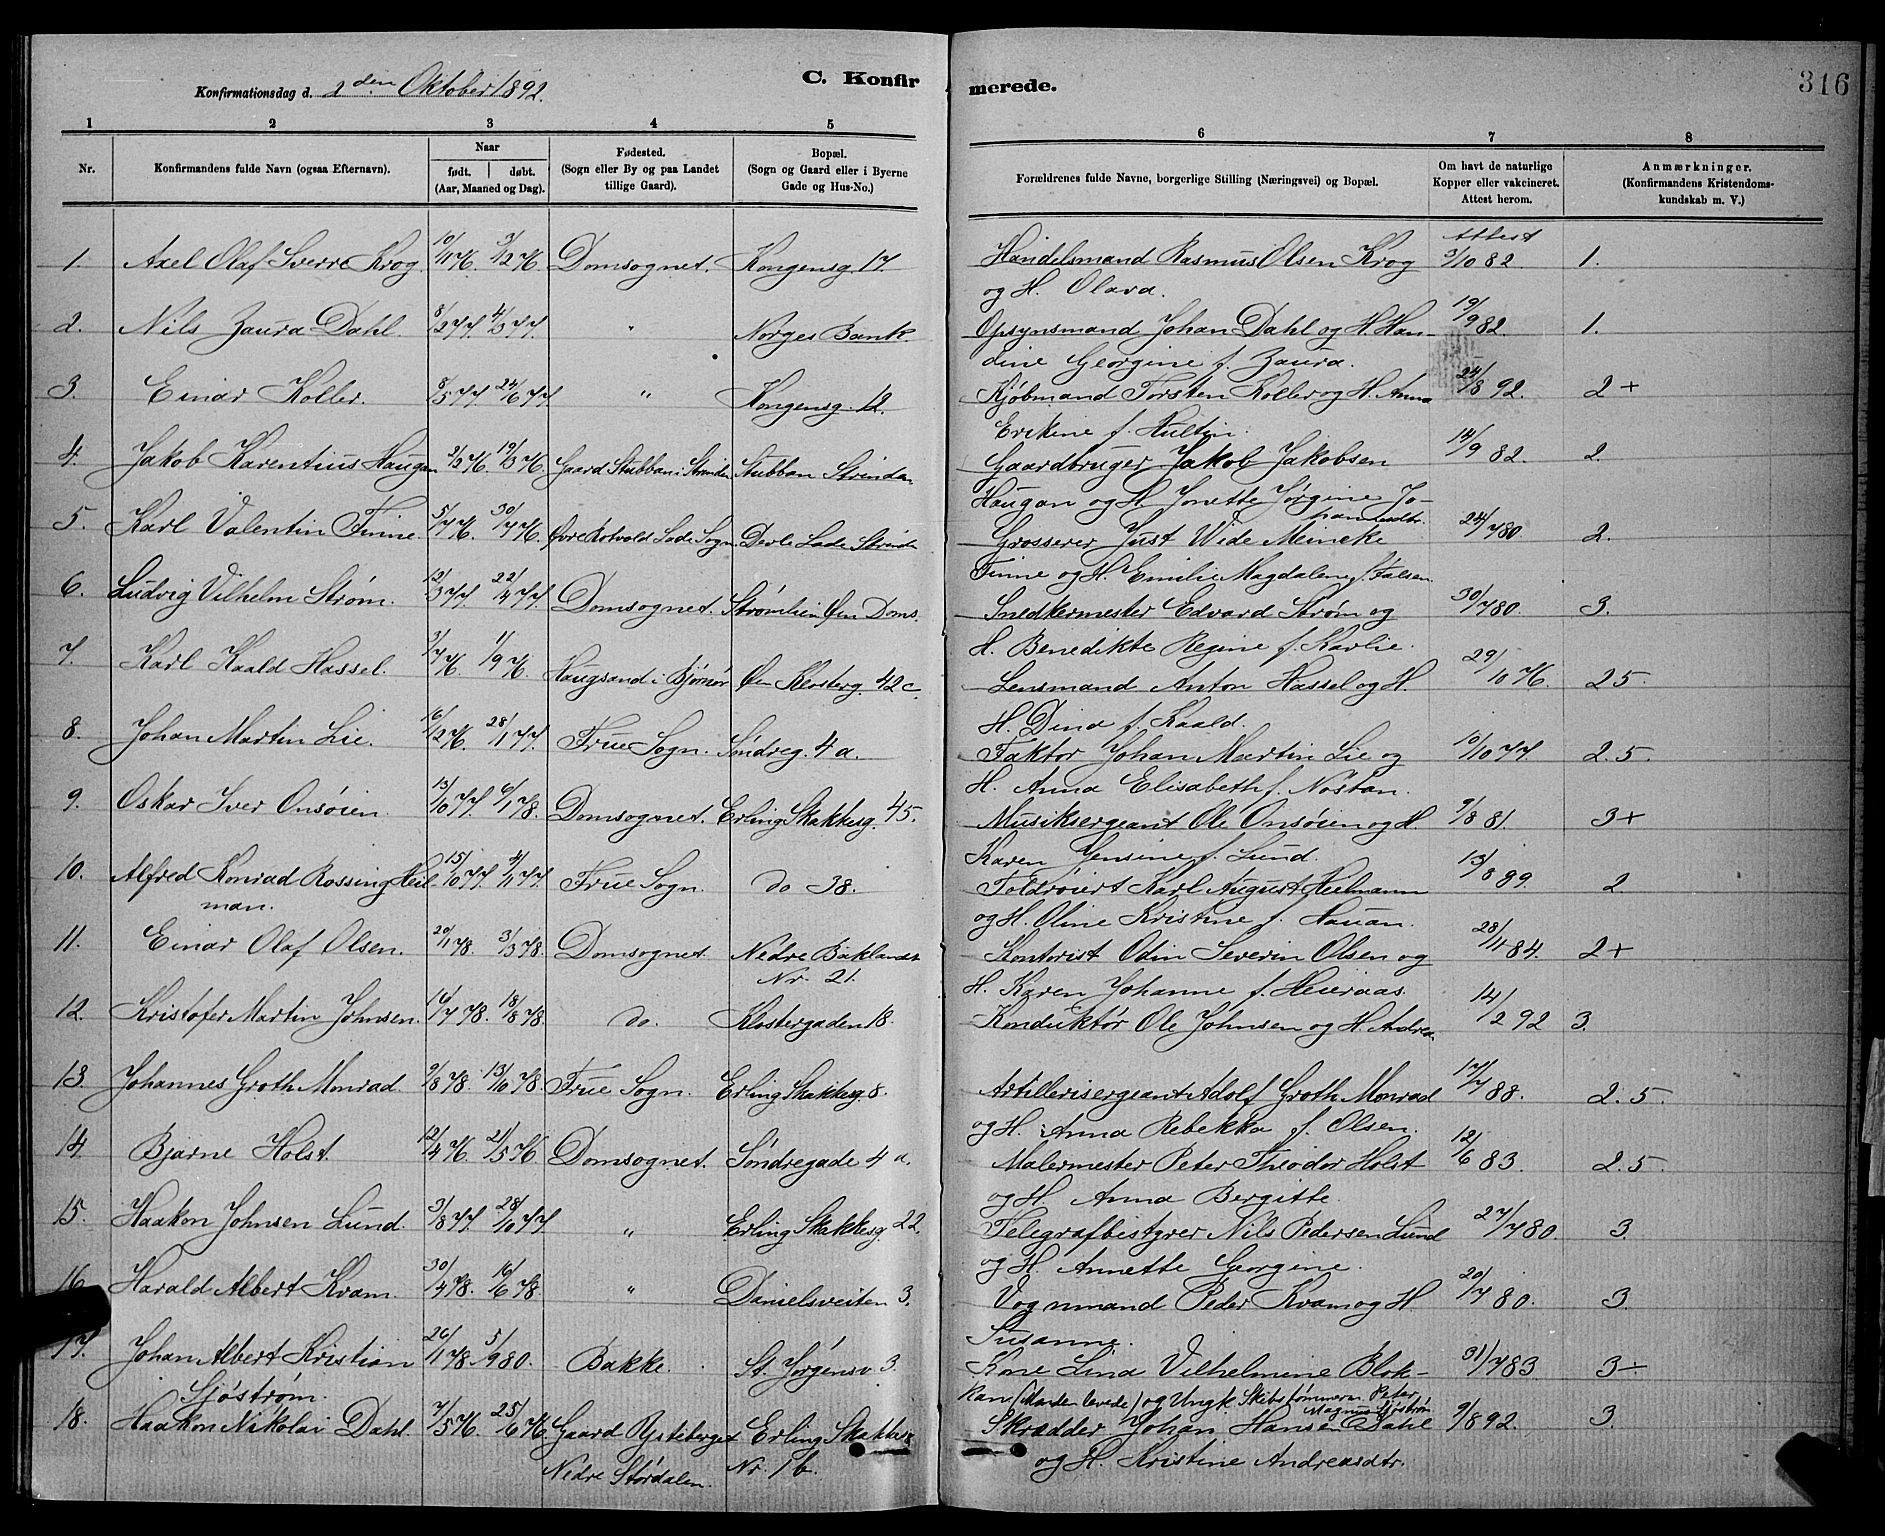 Konfirmationsdag d. 2den Oktober 1892.
C. Konfirmerede.
316
1 2 3 4 5 6 7 8
Nr.
Konfirmandens fulde Navn (ogsaa Efternavn).
Naar
født. døbt.
(Aar, Maaned og Dag).
Fødested.
(Sogn eller By og paa Landet
tillige Gaard).
Bopæl.
(Sogn og Gaard eller i Byerne
Gade og Hus-No.)
Forældrenes fulde Navne, borgerlige Stilling (Næringsvei) og Bopæl.
Om havt de naturlige
Kopper eller vakcineret.
Attest herom.
Anmærkninger.
(Konfirmandens Kristendoms-
kundskab m. V.)
1. Axel Olaf Sverre Krog. 10/1 76. 3/12 76. Domsognet. Kongensg. 17. Handelsmand Rasmus Olsen Krog Attest 3/10 82. 1.
og H. Olava.
2. Nils Zaura Dahl. 8/2 77. 4/3 77. " Norges Bank Opsynsmand Johan Dahl og H. Han- 19/9 82. 1.
dine Georgine f. Zaura.
3. Einar Koller. 8/5 77. 24/6 77. " Kongensg. 12. Kjøbmand Torsten Koller og H. Anna 24/8 92. 2+
Erikine f. Hultin.
4. Jakob Karentius Haugan 2/3 76. 19/3 76. Gaard Stubban i Strinden Stubban Strinden Gaardbruger Jakob Jakobsen 14/9 82. 2.
Haugan og H. Jonette Jørgine Jo-
hannesdtr.
5. Karl Valentin Finne. 5/7 76. 30/7 76. Øvre Rotvold Lade Sogn. Devle Lade Strinden Grosserer Just Wide Meincke 24/7 80. 2.
Finne og H. Emilie Magdalene f. Falsen.
6. Ludvig Vilhelm Strøm. 12/3 77. 22/4 77. Domsognet. Strømlien Øen Doms. Snedkermester Edvard Strøm og 30/7 80. 3.
H. Benedikte Regine f. Karlie.
7. Karl Kaald Hassel. 3/7 76. 1/9 76. Haugsand i Bjørnør Øen Klosterg. 42 c. Lensmand Anton Hassel og H. 29/10 76. 2 5.
H. Dina f. Kaald.
8. Johan Martin Lie. 16/12 76. 28/1 77. Frue Sogn. Søndreg. 4 a. Faktor Johan Martin Lie og 10/10 77. 2.5.
H. Anna Elisabeth f. Nøstan.
9. Oskar Iver Onsøien. 13/10 77. 6/1 78. Domsognet. Erling Skakkesg. 45. Musiksergeant Ole Onsøien og H. 9/8 81. 3+
Karen Jensine f. Lund.
10. Alfred Konrad Rossing Heil- 15/10 77. 4/11 77. Frue Sogn. do 38. Toldrøiert Karl August Heilmann 13/8 89. 2
man.
og H. Oline Kristine f. Hauan.
11. Einar Olaf Olsen. 20/1 78. 3/3 78. Domsognet. Nedre Baklandet Kontorist Odin Severin Olsen og 28/11 84. 2+
Nr. 21.
H. Karen Johanne f. Heieraas.
12. Kristofer Martin Johnsen. 16/7 78. 18/8 78. do. Klostergaden 18. Konduktør Ole Johnsen og H. Andrea. 14/2 92 3.
13. Johannes Groth Monrad 9/8 78. 13/10 78. Frue Sogn. Erling Skakkesg. 8. Artillerisergeant Adolf Groth Monrad 17/7 88. 2.5.
og H. Anna Rebekka f. Olsen.
14. Bjarne Holst. 12/4 76. 21/5 76 Domsognet. Søndregade 4 a. Malermester Peter Theodor Holst 12/6 83. 2.5.
og H. Anna Bergitte.
15. Haakon Johnsen Lund. 3/8 77. 28/10 77 " Erling Skakkesg. 22. Telegrafbestyrer Nils Pedersen Lund 27/7 80. 3.
og H. Annette Georgine.
16. Harald Albert Kvam. 30/4 78. 16/6 78 " Danielsveiten 3. Vognmand Peder Kvam og H 20/7 80. 3.
Susanne.
17. Johan Albert Kristian 26/1 78. 5/9 80. Bakke. St. Jørgensv. 3. Kone Lina Vilhelmine Blok- 31/7 83 3-
Sjøstrøm.
kan (Manden levede) og Ungk. Skibstømmerm. Peter
Magnus Sjøstrøm
18. Haakon Nikolai Dahl. 7/5 76. 25/6 76 Gaard Ysteberget Erling Skakkesg Skrædder Johan Hansen Dahl 9/8 92. 3.
Nedre Størdalen. Nr. 1 b. og H. Kristine Andreasdtr.